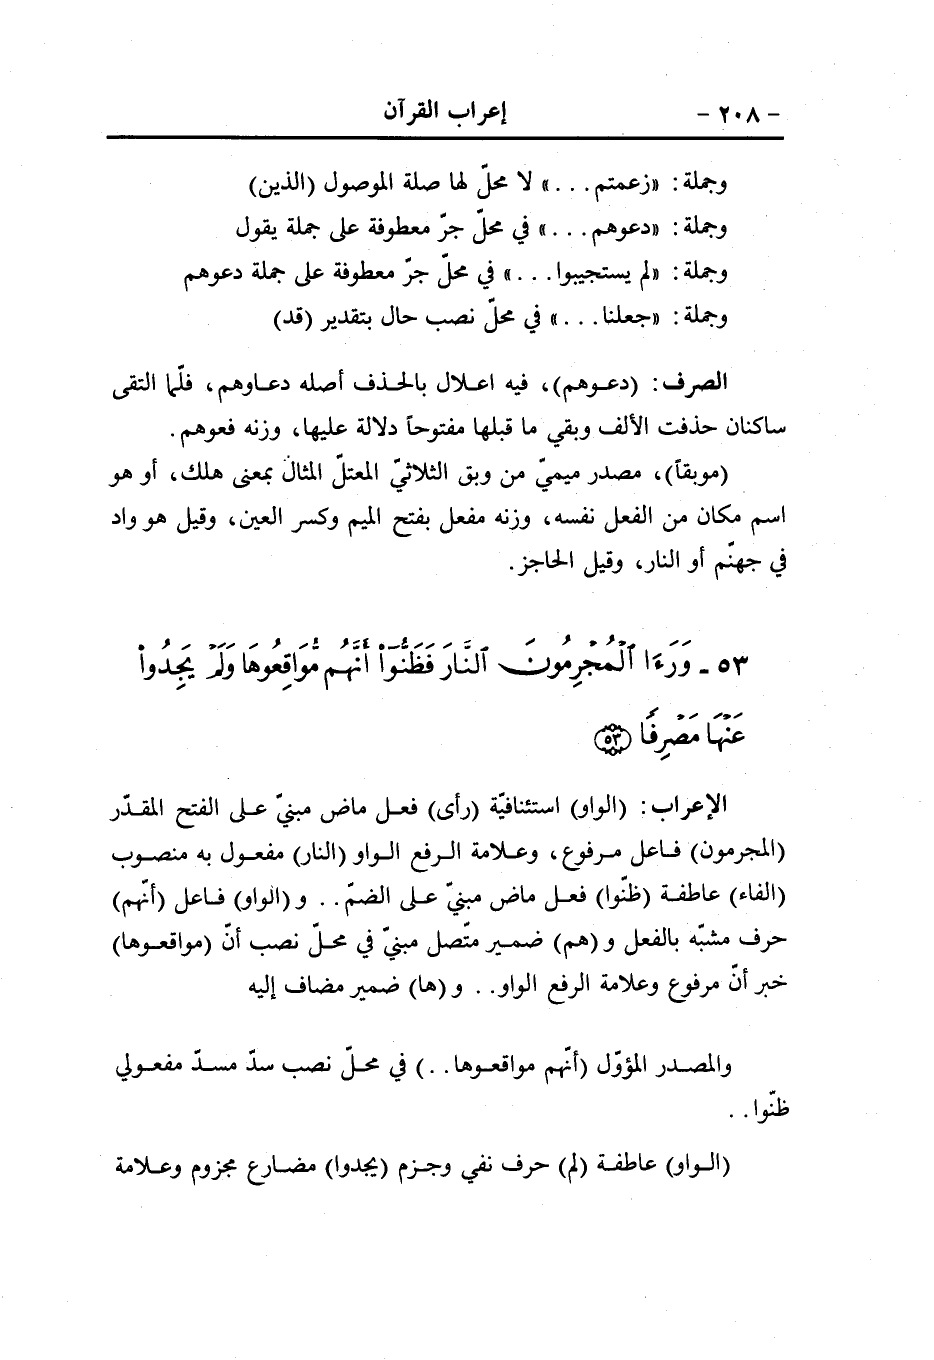 - ٢٠٨ - إعراب القرآن
وجملة: «زعمتم...» لا محلّ لها صلة الموصول (الذين)
وجملة: «دعوهم...» في محلّ جرّ معطوفة على جملة يقول
وجملة: «لم يستجيبوا...» في محلّ جرّ معطوفة على جملة دعوهم
وجملة: «جعلنا...» في محلّ نصب حال بتقدير (قد)
الصرف: (دعوهم)، فيه اعلال بالحذف أصله دعاوهم، فلّما التقى
ساكنان حذفت الألف وبقي ما قبلها مفتوحاً دلالة عليها، وزنه فعوهم.
(موبقاً)، مصدر ميميّ من وبق الثلاثيّ المعتلّ المثال بمعنى هلك، أو هو
اسم مكان من الفعل نفسه، وزنه مفعل بفتح الميم وكسر العين، وقيل هو واد
في جهنّم أو النار، وقيل الحاجز.
٥٣ - وَرَءَا ٱلْمُجْرِمُونَ ٱلنَّارَ فَظَنُّوٓاْ أَنَّهُم مُّوَاقِعُوهَا وَلَمْ يَجِدُواْ
عَنْهَا مَصْرِفًا ﴿٥٣﴾
الإعراب: (الواو) استئنافيّة (رأى) فعل ماض مبنيّ على الفتح المقدّر
(المجرمون) فاعل مرفوع، وعلامة الرفع الواو (النار) مفعول به منصوب
(الفاء) عاطفة (ظنّوا) فعل ماض مبنيّ على الضمّ.. و(الواو) فاعل (أنّهم)
حرف مشبّه بالفعل و(هم) ضمير متّصل مبنيّ في محلّ نصب أنّ (مواقعوها)
خبر أنّ مرفوع وعلامة الرفع الواو.. و(ها) ضمير مضاف إليه
والمصدر المؤوّل (أنّهم مواقعوها..) في محلّ نصب سدّ مسدّ مفعولي
ظنّوا..
(الواو) عاطفة (لم) حرف نفي وجزم (يجدوا) مضارع مجزوم وعلامة